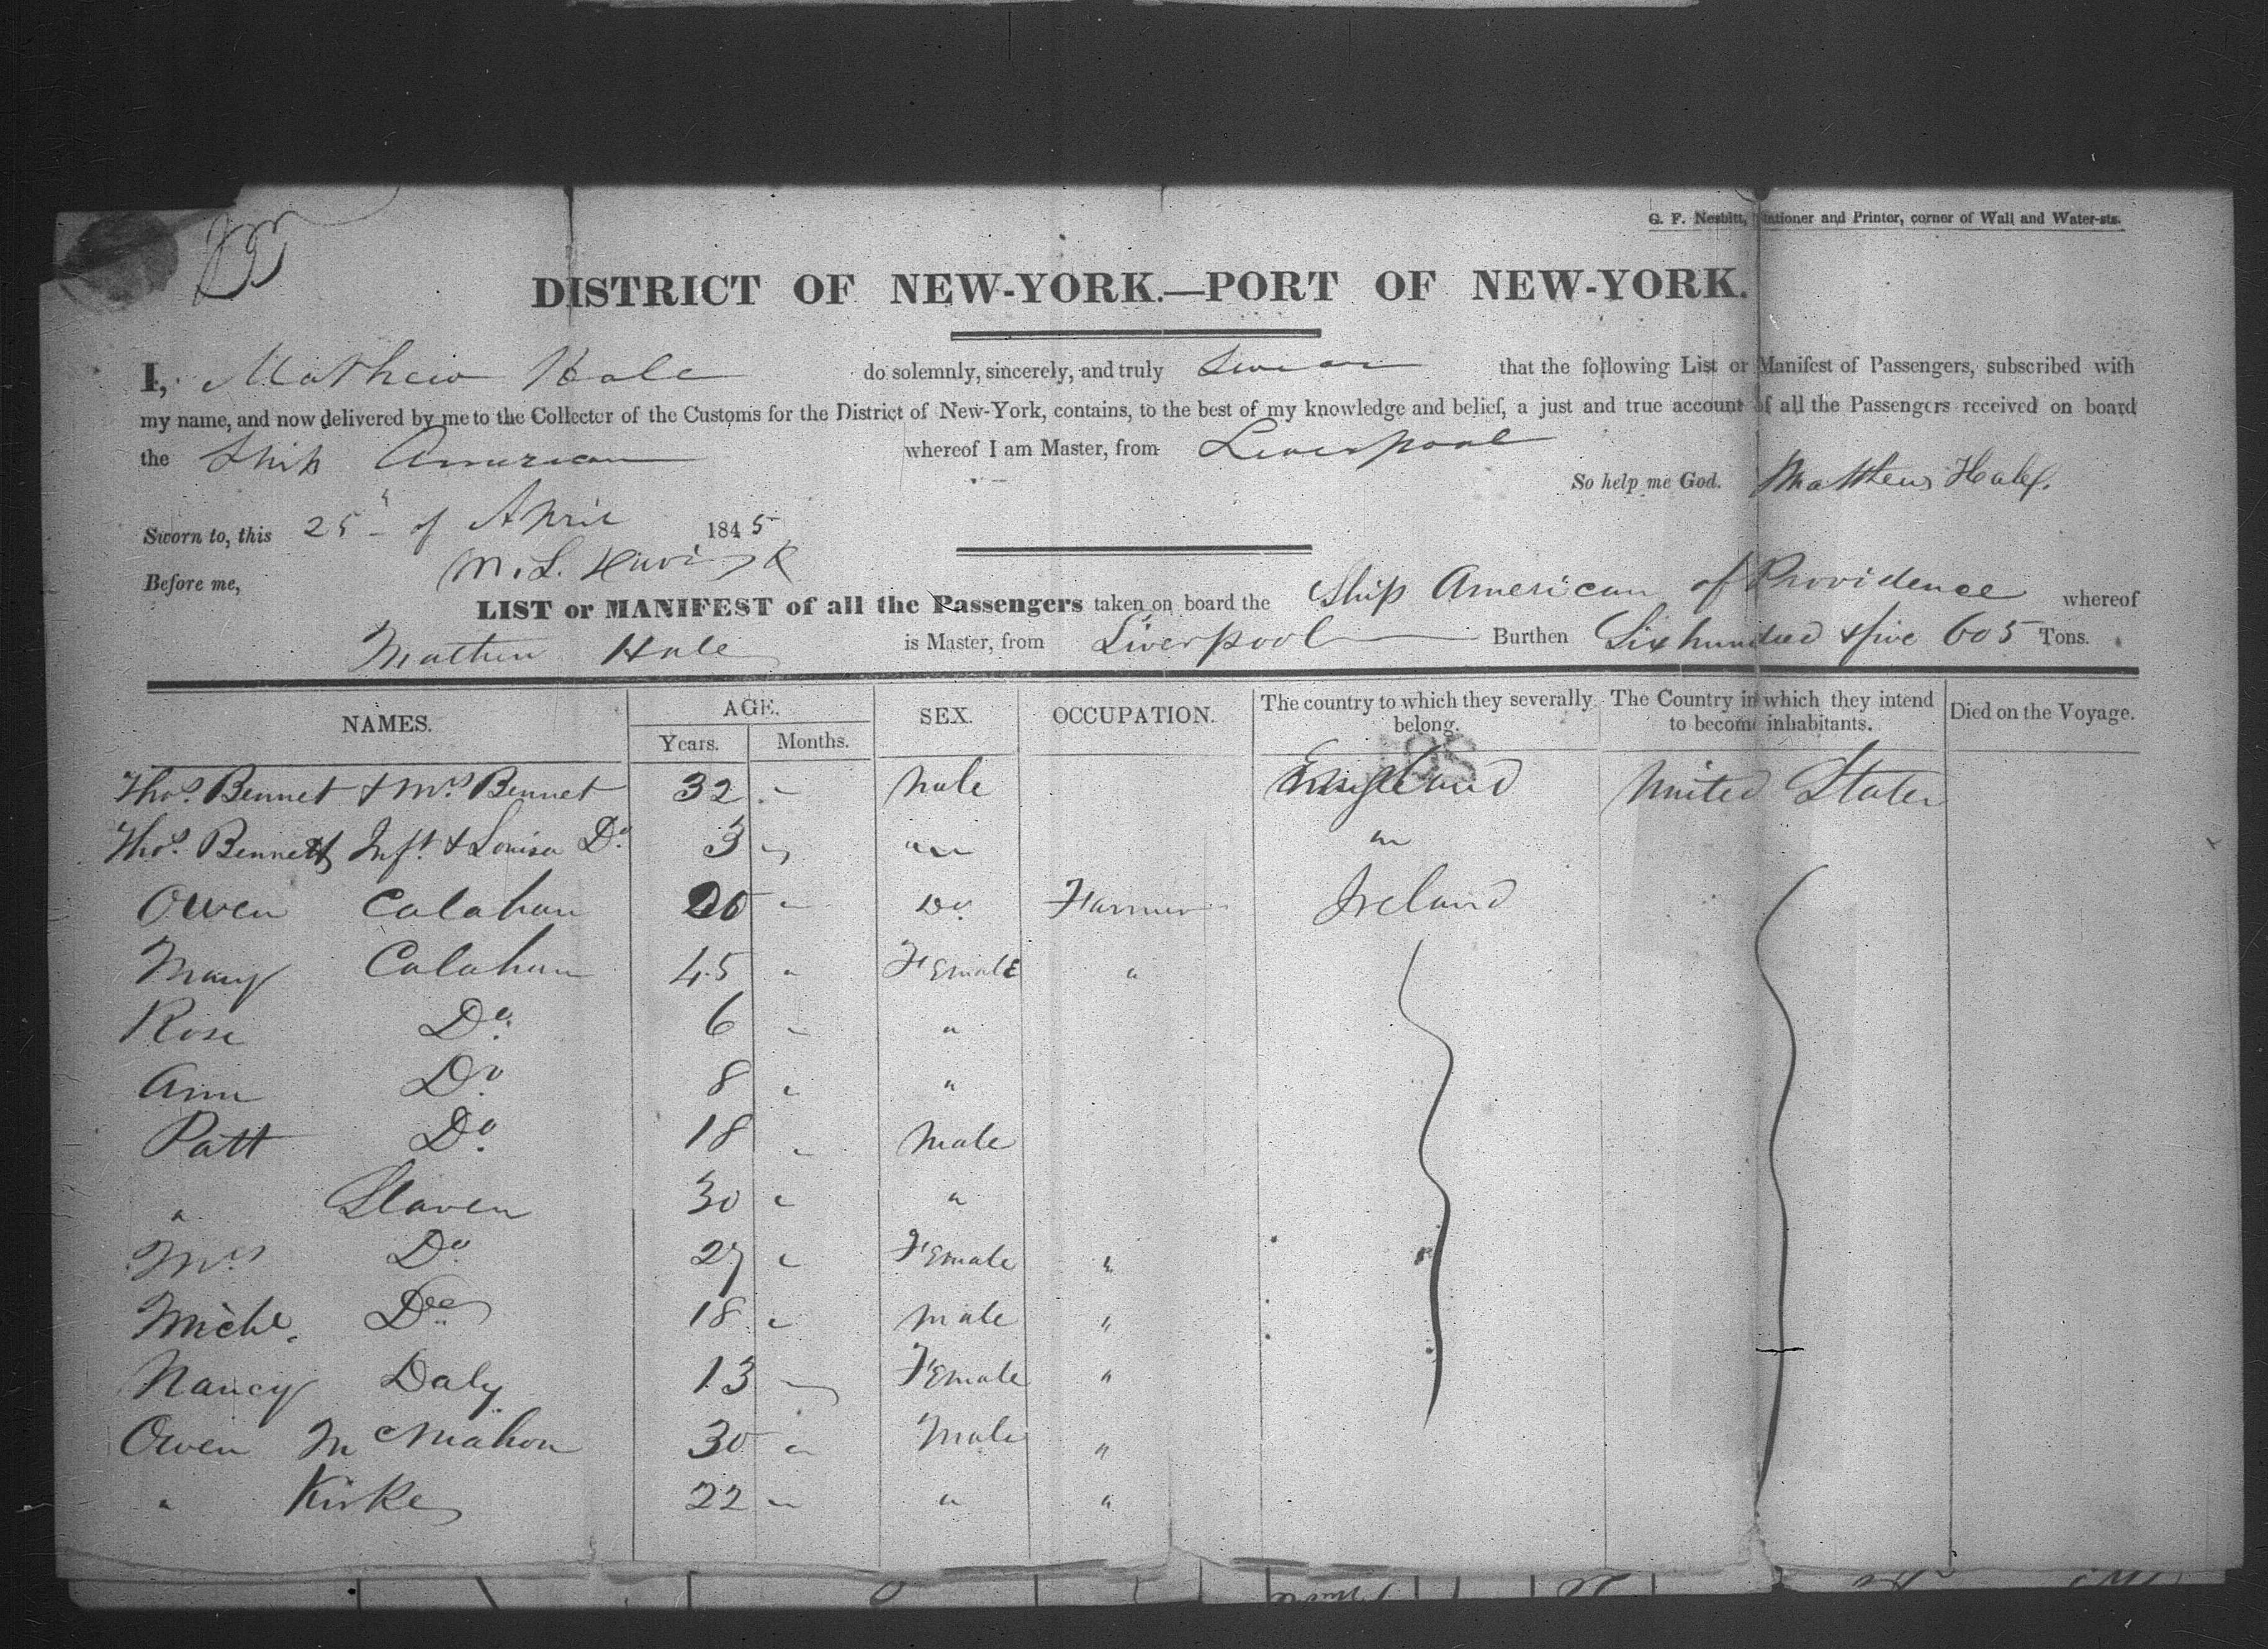 G. F. Nesbitt, Stationer and Printer, corner of Wall and Water-sts.
DISTRICT OF NEW-YORK.—PORT OF NEW-YORK.
I, Mathew Hale do solemnly, sincerely, and truly Swear that the following List or Manifest of Passengers, subscribed with
my name, and now delivered by me to the Collecter of the Customs for the District of New-York, contains, to the best of my knowledge and belief, a just and true account of all the Passengers received on board
the Ship American whereof I am Master, from Liverpool
So help me God. Matthew Hale.
Sworn to, this 25 of April 1845
Before me, M. L.
LIST or MANIFEST of all the Passengers taken on board the Ship American of Providence whereof
Mathew Hale is Master, from Liverpool Burthen Six hundred & five 605 Tons.
NAMES. AGE. SEX. OCCUPATION. The country to which they severally belong. The Country in which they intend to become inhabitants. Died on the Voyage.
Years. Months.
Thos. Bennet & Mrs. Bennet 32 " Male England United States
Thos. Bennett Inft. & Louisa Do. 3 " " "
Owen Calahan 20 " Do. Farmer Ireland
Mary Calahan 45 " Female "
Rose Do. 6 " "
Ann Do. 8 " "
Patt Do. 18 " Male
" Slaven 30 " "
Mrs Do. 27 " Female "
Michl. Do. 18 " male "
Nancy Daly 13 " Female "
Owen McMahon 30 " Male "
" Kirke 22 " " "